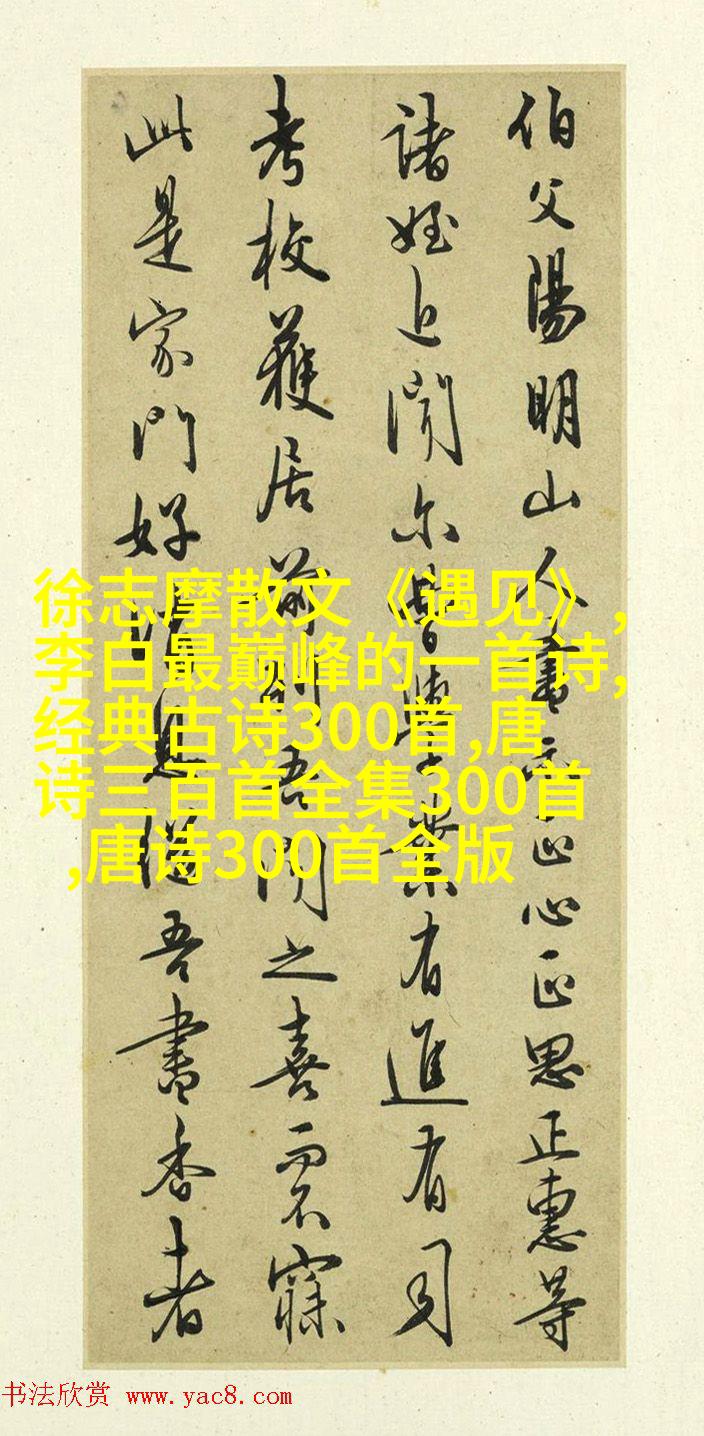 伯父陽明山人書示正心正思正惠等
諸姪近聞尔曹學業有進有司
考校獲居前列吾聞之喜而不寐
此是家門好消息繼吾書香者
徐志摩散文《遇见》,
李白最巅峰的一首诗,
经典古诗300首,唐
诗三百首全集300首
,唐诗300首全版
书法欣赏 www.yac8.com